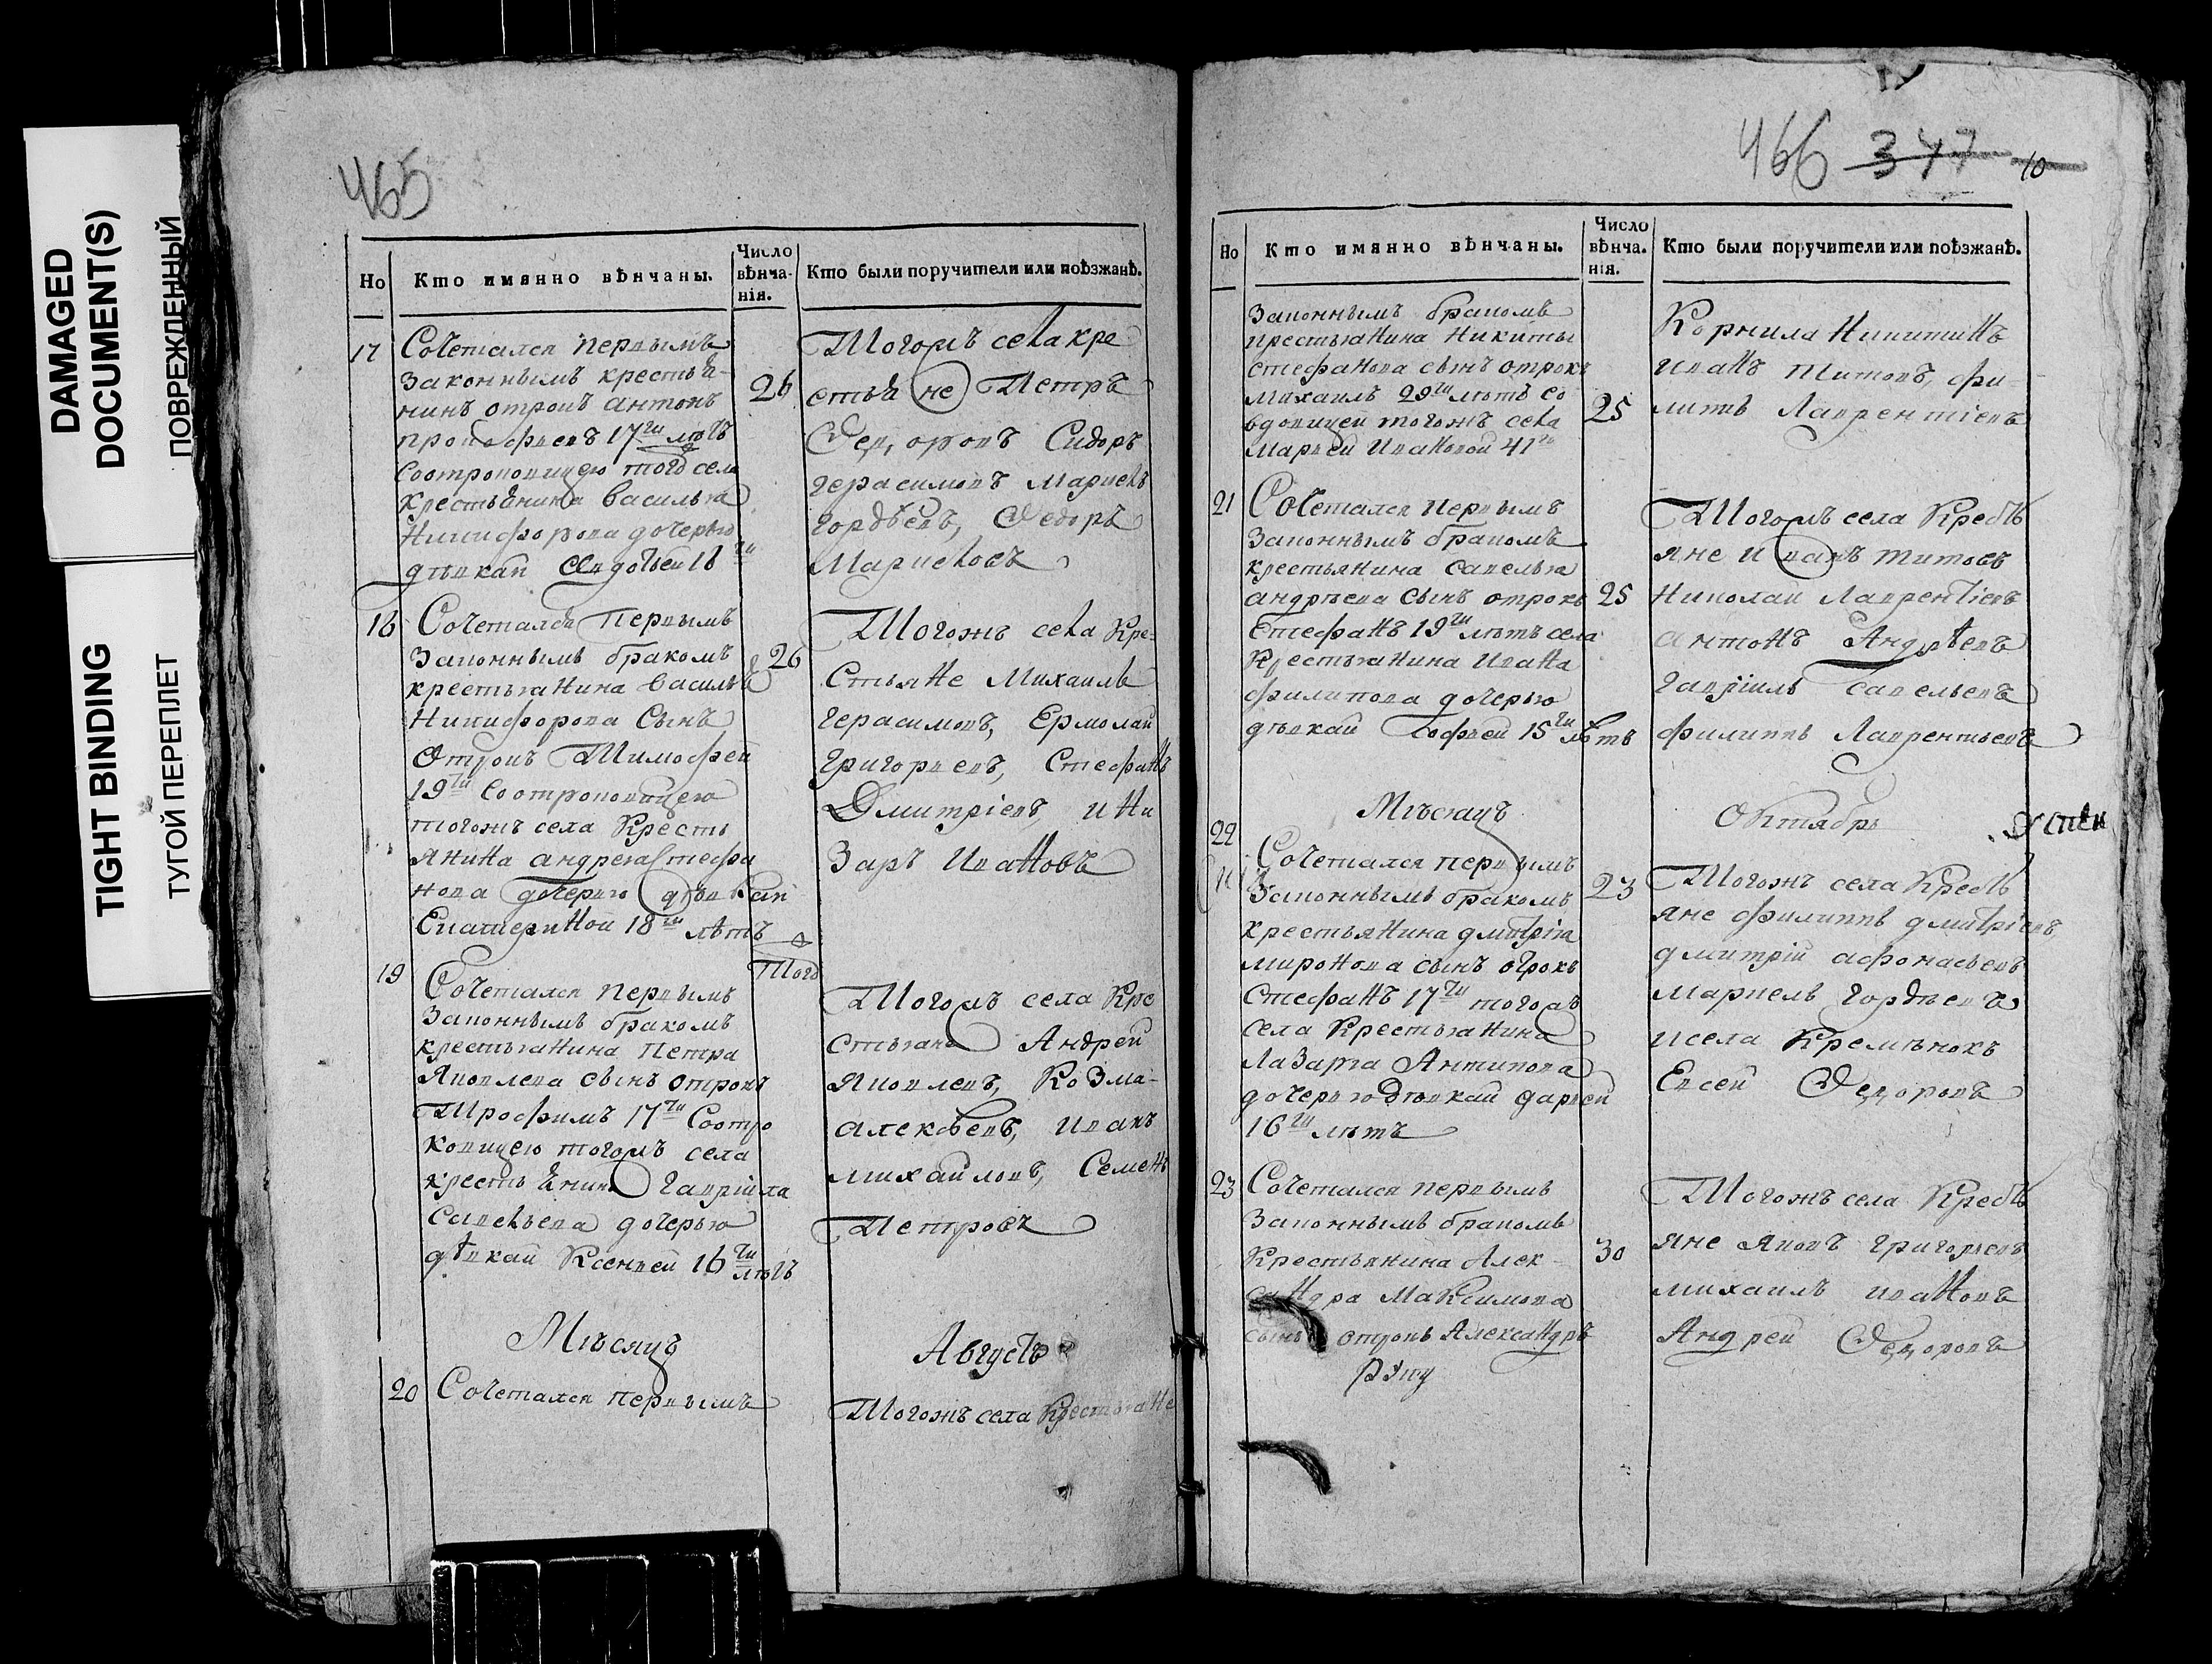 DAMAGED
DOCUMENT(S)
ПОВРЕЖДЕННЫЙ
TIGHT BINDING
ТУГОЙ ПЕРЕПЛЕТ
465
Но
Кто имянно вѣнчаны.
Число вѣнча-нія.
Кто были поручители или поѣзжанѣ.
17
Сочетался первымъ
законнымъ крестья-
нинъ отрокъ антонъ
прокофьевъ 17ти лѣтъ
соотроковицею тогожъ села
крестьянина василья
Никифорова дочерью
дѣвкай 18ти
26
Тогожъ села кре
стьяне Петръ
Федоровъ Сидоръ
герасимовъ Маркелъ
гордѣевъ, Федоръ
Маркеловъ
18
Сочетался первымъ
законнымъ бракомъ
крестьянина василья
Никифорова сынъ
отрокъ Тимофей
19ти соотроковицею
тогожъ села Кресть
янина андрея Стефа
нова дочерью дѣвкай
Екатериной 18ти лѣтъ
26
Тогожъ села Кре-
стьяне Михаилъ
герасимовъ, Ермолай
григорьевъ, Стефанъ
Дмитріевъ, и На
заръ Ивановъ
19
Сочетался первымъ
законнымъ бракомъ
крестьянина Петра
Яковлева сынъ отрокъ
Трофимъ 17ти соотро
ковицею тогожъ села
крестьянина гавріила
савельева дочерью
дѣвкай Ксеньей 16ти лѣтъ
Тогожъ села Кре
стьяне Андрей
Яковлевъ, Козма-
алексѣевъ, иванъ
михайловъ, Семенъ
Петровъ
Мѣсяцъ
Августъ
20
Сочетался первымъ
Тогожъ села Крестьяне
466 347 10
Но
Кто имянно вѣнчаны.
Число вѣнча-нія.
Кто были поручители или поѣзжанѣ.
законнымъ бракомъ
крестьянина Никиты
стефанова сынъ отрокъ
михаилъ 29ти лѣтъ со
вдовицей тогожъ села
марьей Ивановой 41го
25
Корнила Никитинъ
иванъ титовъ, фи-
липъ Лаврентіевъ
21
Сочетался первымъ
законнымъ бракомъ
крестьянина савелья
андрѣева сынъ отрокъ
стефанъ 19ти лѣтъ села
Крестьянина ивана
филипова дочерью
дѣвкай софьей 15ти лѣтъ
25
Тогожъ села Кресть
яне иванъ титовъ
Николай Лаврентіевъ
антонъ Андрѣевъ
гавріилъ савельевъ
филиппъ Лаврентьевъ
Мѣсяцъ
Октябрь
22
Сочетался первымъ
законнымъ бракомъ
крестьянина дмитрія
миронова сынъ отрокъ
стефанъ 17ти тогожъ
села Крестьянина
Лазаря Антипова
дочерью дѣвкай дарьей
16ти лѣтъ
23
Тогожъ села Кресть
яне филиппъ дмитріевъ,
дмитрій афонасьевъ
маркелъ гордѣевъ
и села Кремѣнокъ
Евсей Федоровъ
23
Сочетался первымъ
законнымъ бракомъ
Крестьянина Алек-
сандра Максимова
сынъ отрокъ Александръ
30
Тогожъ села Кресть
яне Яковъ григорьевъ
михаилъ ивановъ
Андрей Федоровъ